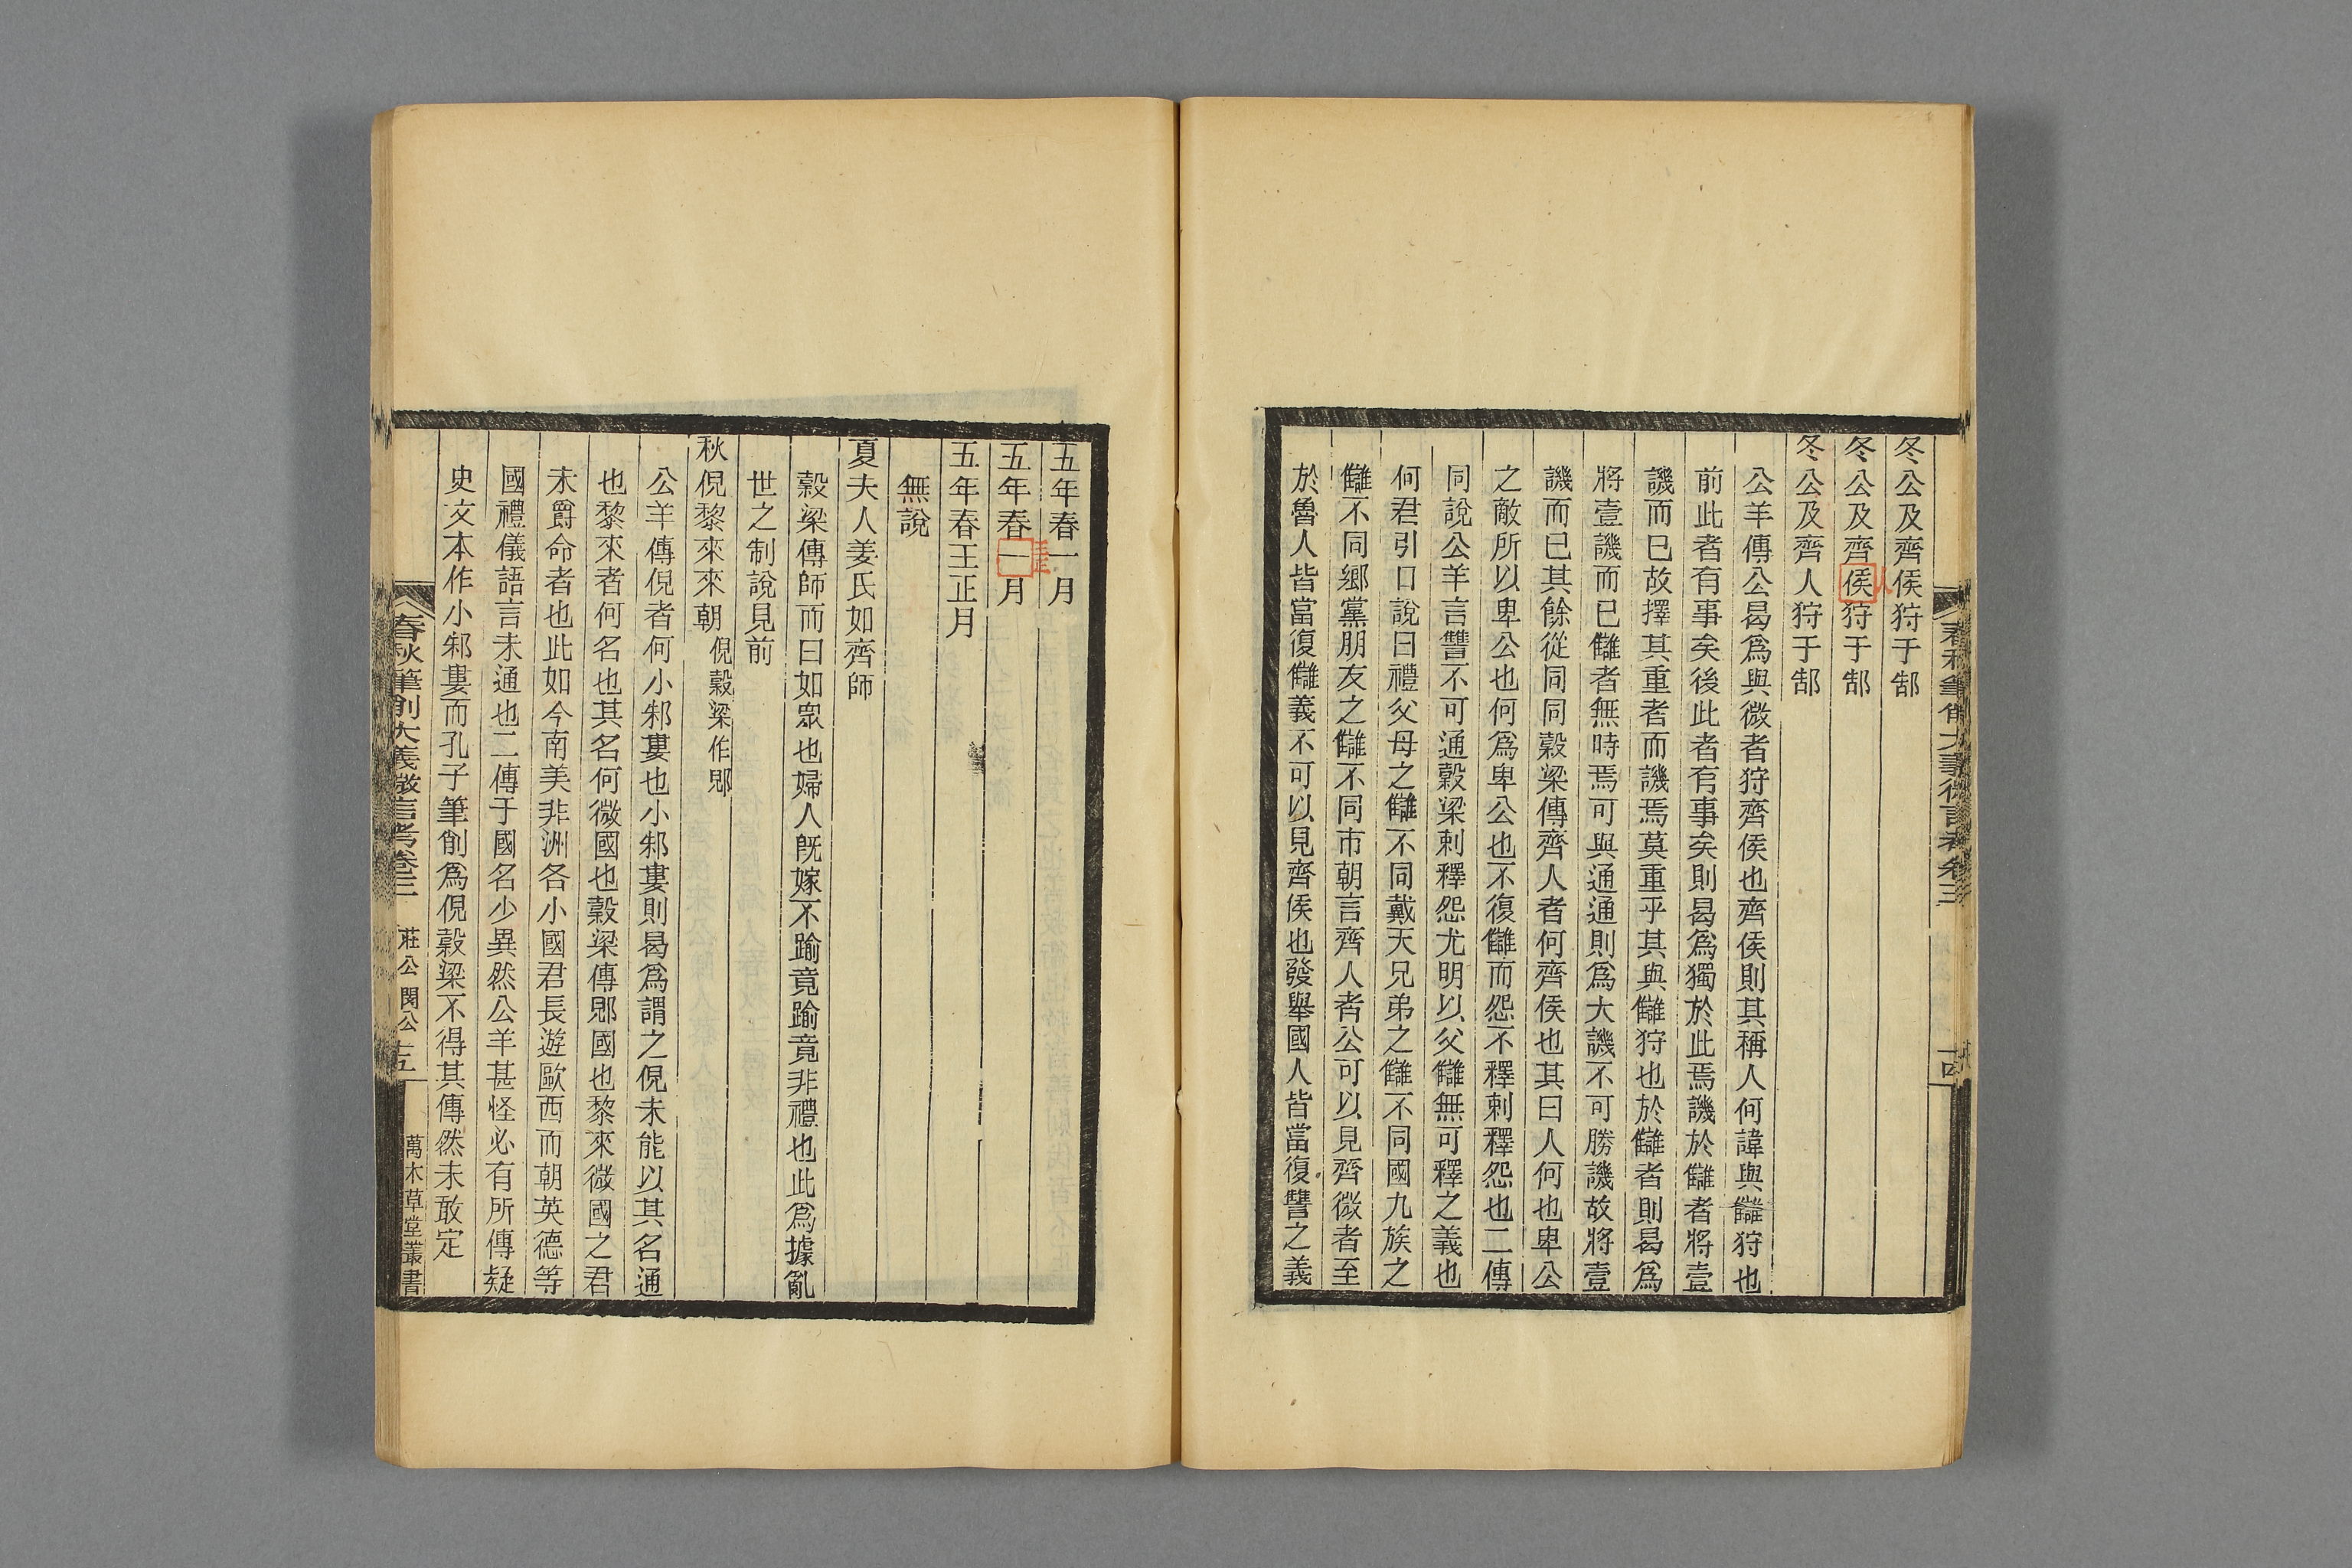 春秋筆削大義微言考卷三
十四
冬公及齊侯狩于郜
冬公及齊侯狩于郜
人
冬公及齊人狩于郜
公羊傳公曷爲與微者狩齊侯也齊侯則其稱人何諱與讎狩也
前此者有事矣後此者有事矣則曷爲獨於此焉譏於讎者將壹
譏而巳故擇其重者而譏焉莫重乎其與讎狩也於讎者則曷爲
將壹譏而巳讎者無時焉可與通通則爲大譏不可勝譏故將壹
譏而巳其餘從同同穀梁傳齊人者何齊侯也其曰人何也卑公
之敵所以卑公也何爲卑公也不復讎而怨不釋刺釋怨也二傳
同說公羊言讐不可通穀梁刺釋怨尤明以父讎無可釋之義也
何君引口說曰禮父母之讎不同戴天兄弟之讎不同國九族之
讎不同鄉黨朋友之讎不同市朝言齊人者公可以見齊微者至
於魯人皆當復讎義不可以見齊侯也發舉國人皆當復讐之義
五年春一月
王正
五年春一月
五年春王正月
無說
夏夫人姜氏如齊師
穀梁傳師而曰如眾也婦人旣嫁不踰竟踰竟非禮也此爲據亂
世之制說見前
秋倪黎來來朝倪穀梁作郳
公羊傳倪者何小邾婁也小邾婁則曷爲謂之倪未能以其名通
也黎來者何名也其名何微國也穀梁傳郳國也黎來微國之君
未爵命者也此如今南美非洲各小國君長遊歐西而朝英德等
國禮儀語言未通也二傳于國名少異然公羊甚怪必有所傳疑
史文本作小邾婁而孔子筆削爲倪穀梁不得其傳然未敢定
春秋筆削大義微言考卷三 莊公 閔公 十五 萬木草堂叢書